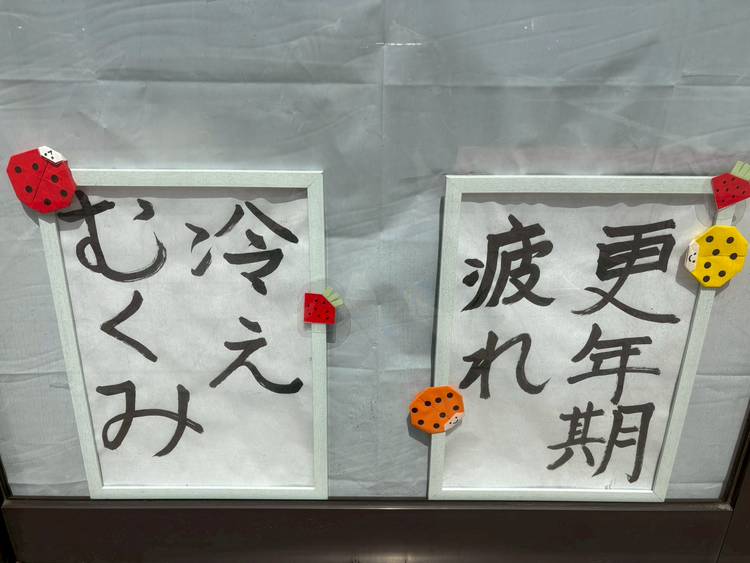 更年期
疲れ
冷え
むくみ